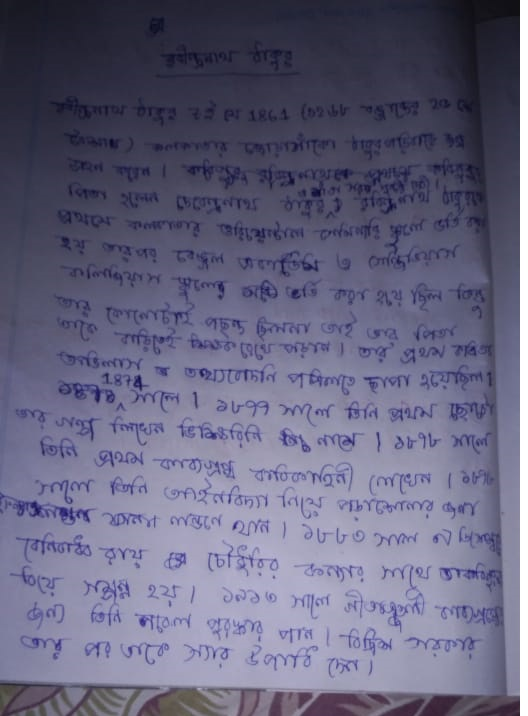 রবীন্দ্রনাথ ঠাকুর
রবীন্দ্রনাথ ঠাকুর 7ই মে 1861 (১২৬৮ বঙ্গাব্দের ২৫ শে
বৈশাখ) কলকাতার জোড়াসাঁকো ঠাকুরপরিবারে জন্ম
গ্রহন করেন। কবিগুরু
পিতা হলেন দেবেন্দ্রনাথ ঠাকুর রবীন্দ্রনাথ ঠাকুরকে
প্রথমে কলকাতার ওরিয়েন্টাল সেমিনারি স্কুলে ভর্তি করা
হয় তারপর বেঙ্গল একাডেমি ও সেন্ট জেভিয়াস
কলিজিয়াস স্কুলে ভর্তি করা হয়ে ছিল কিন্তু
তার কোনোটাই পছন্দ ছিলনা তাই তার পিতা
তাকে বাড়িতেই শিক্ষক রেখে পড়ান। তার প্রথম কবিতা
অভিলাস তত্ত্ববোধনি পত্রিকাতে ছাপা হয়েছিল।
1874 সালে। ১৮৭৭ সালে তিনি প্রথম ছোটো
তার গল্প লিখেন ভিখারিনি নামে। ১৮৭৮ সালে
তিনি প্রথম কাব্যগ্রন্থ কবিকাহিনী লেখেন। ১৮৭৮
সালে তিনি আইনবিদ্যা নিয়ে পড়াশোনার জন্য
লন্ডনে যান। ১৮৮৩ সাল ৯ই ডিসেম্বর
বেনিমাধব রায় চৌধুরির কন্যার সাথে
বিয়ে সম্পন্ন হয়। ১৯১৩ সালে গীতাঞ্জলী কাব্যগ্রন্থের
জন্য তিনি নবেল পুরস্কার পান। ব্রিটিশ সরকার
তার পর তাকে স্যার উপাধি দেন।